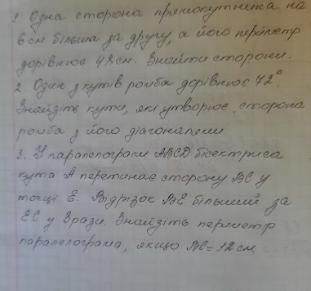 1. Одна сторона прямокутника на
6 см більша за другу, а його периметр
дорівнює 48 см. Знайти сторони.
2. Один з кутів ромба дорівнює 72°
Знайдіть кути, які утворює сторона
ромба з його діагоналями
3. У паралелограмі ABCD бісектриса
кута А перетинає сторону BC у
точці E. Відрізок BE більший за
EC у 3 рази. Знайдіть периметр
паралелограма, якщо BC = 12 см